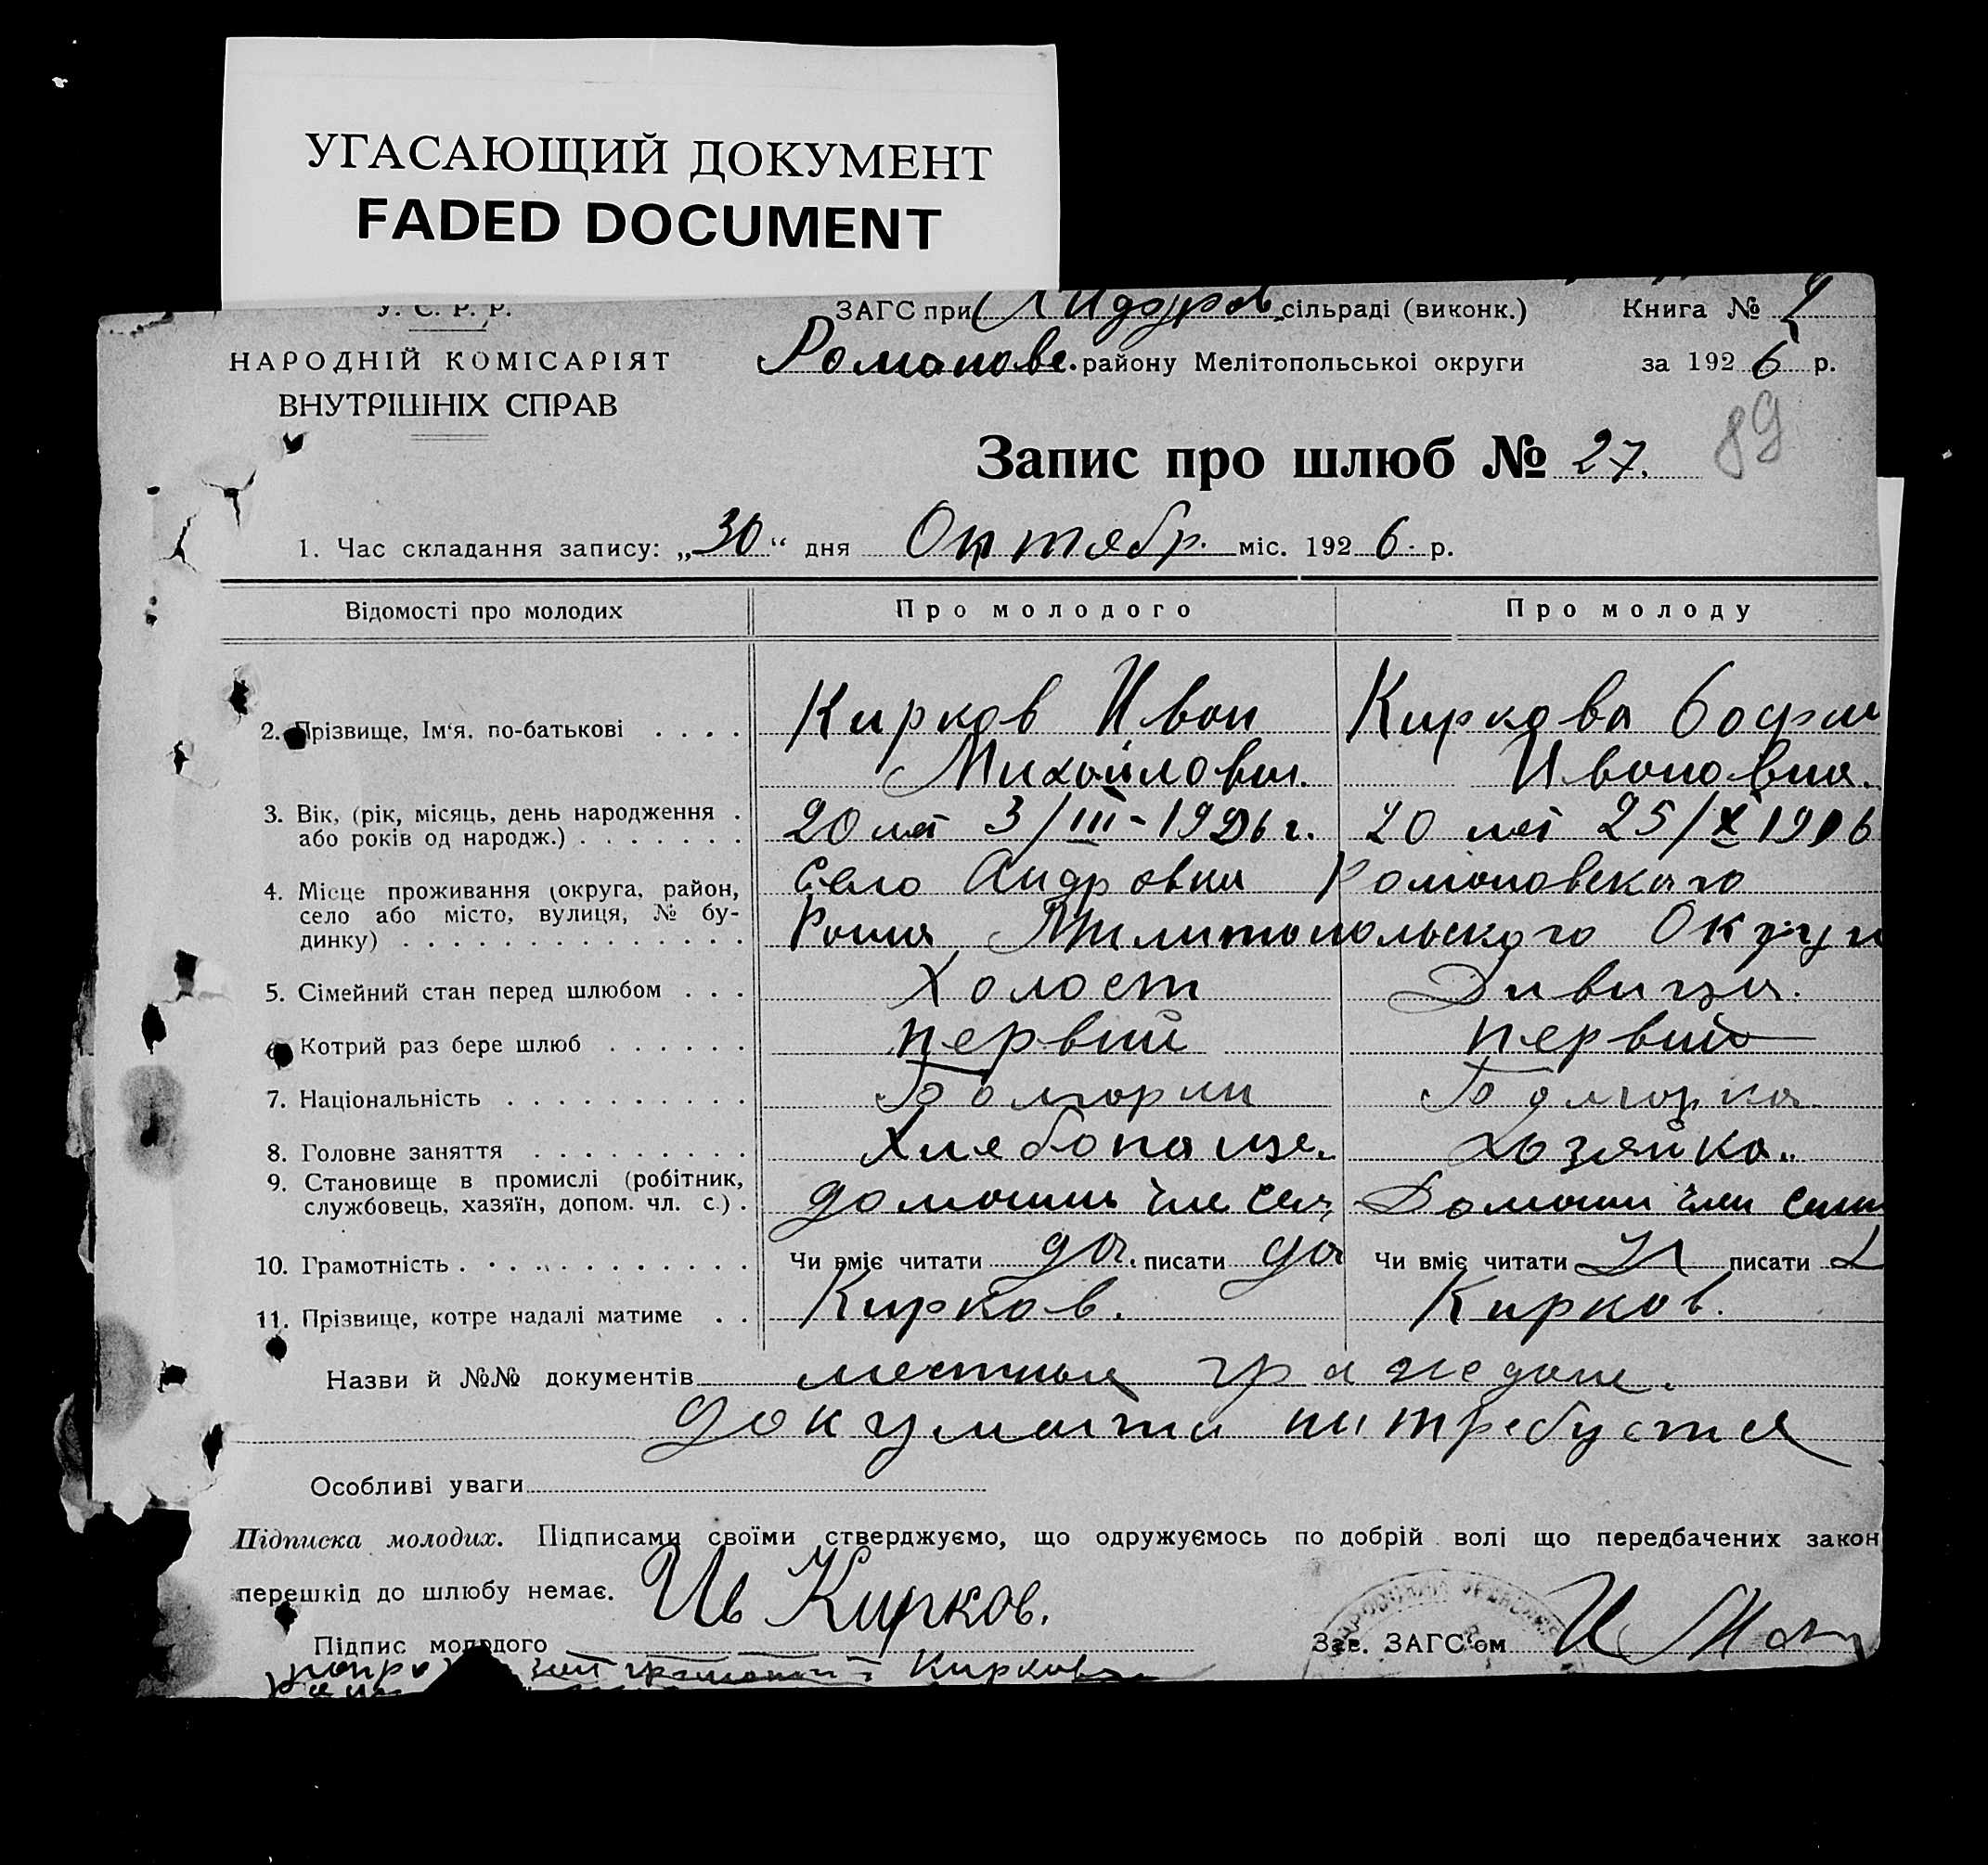 УГАСАЮЩИЙ ДОКУМЕНТ
FADED DOCUMENT
У. С. Р. Р.
НАРОДНІЙ КОМІСАРІЯТ
ВНУТРІШНІХ СПРАВ
ЗАГС при Андров. сільраді (виконк.)
Романовс. району Мелітопольської округи
Книга №
за 1926 р.
89
Запис про шлюб № 27.
1. Час складання запису: „30“ дня Октябр. міс. 1926. р.
Відомості про молодих Про молодого Про молоду
2. Прізвище, Ім‘я, по-батькові . . . . Кирков Иван Киркова Софи
Михайлович. Ивановна.
3. Вік, (рік, місяць, день народження . 20 лет 3/III-1906 г. 20 лет 25/X 1906
або років од народж.) . . . . . . .
4. Місце проживання (округа, район, Село Андровки Романовского
село або місто, вулиця, № бу-
динку) . . . . . . . . . . . . . . . Милитопольского Округи
5. Сімейний стан перед шлюбом . . . Холост Дивица.
6. Котрий раз бере шлюб . . . . . . первий первий
7. Національність . . . . . . . . . . Болгарин Болгарка
8. Головне заняття . . . . . . . . . Хлебопаще. Хозяйка.
9. Становище в промислі (робітник,
службовець, хазяїн, допом. чл. с.) . домашн чле сем, Домашн член семи
10. Грамотність . . . . . . . . . . . Чи вміє читати да. писати да Чи вміє читати писати
11. Прізвище, котре надалі матиме . . Кирков. Кирков.
Назви й №№ документів местные граждане.
документи нитребуется
Особливі уваги
Підписка молодих. Підписами своїми стверджуємо, що одружуємось по добрій волі що передбачених закон
перешкід до шлюбу немає. Ив Кирков.
Підпис молодого
Зав. ЗАГС‘ом И
Киркова